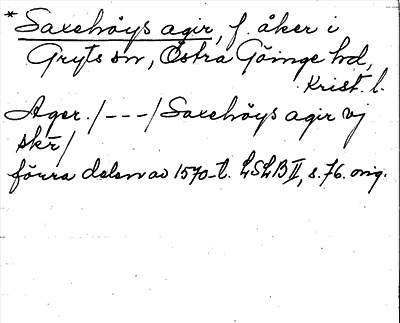 * Saxehöys agir, f. åker i
Gryts sn, Östra Göinge hd,
Krist. l.
Ager. /---/ Saxehöys agir vj
skr /
förra delen av 1570-t. LSLB II, s. 76. orig.